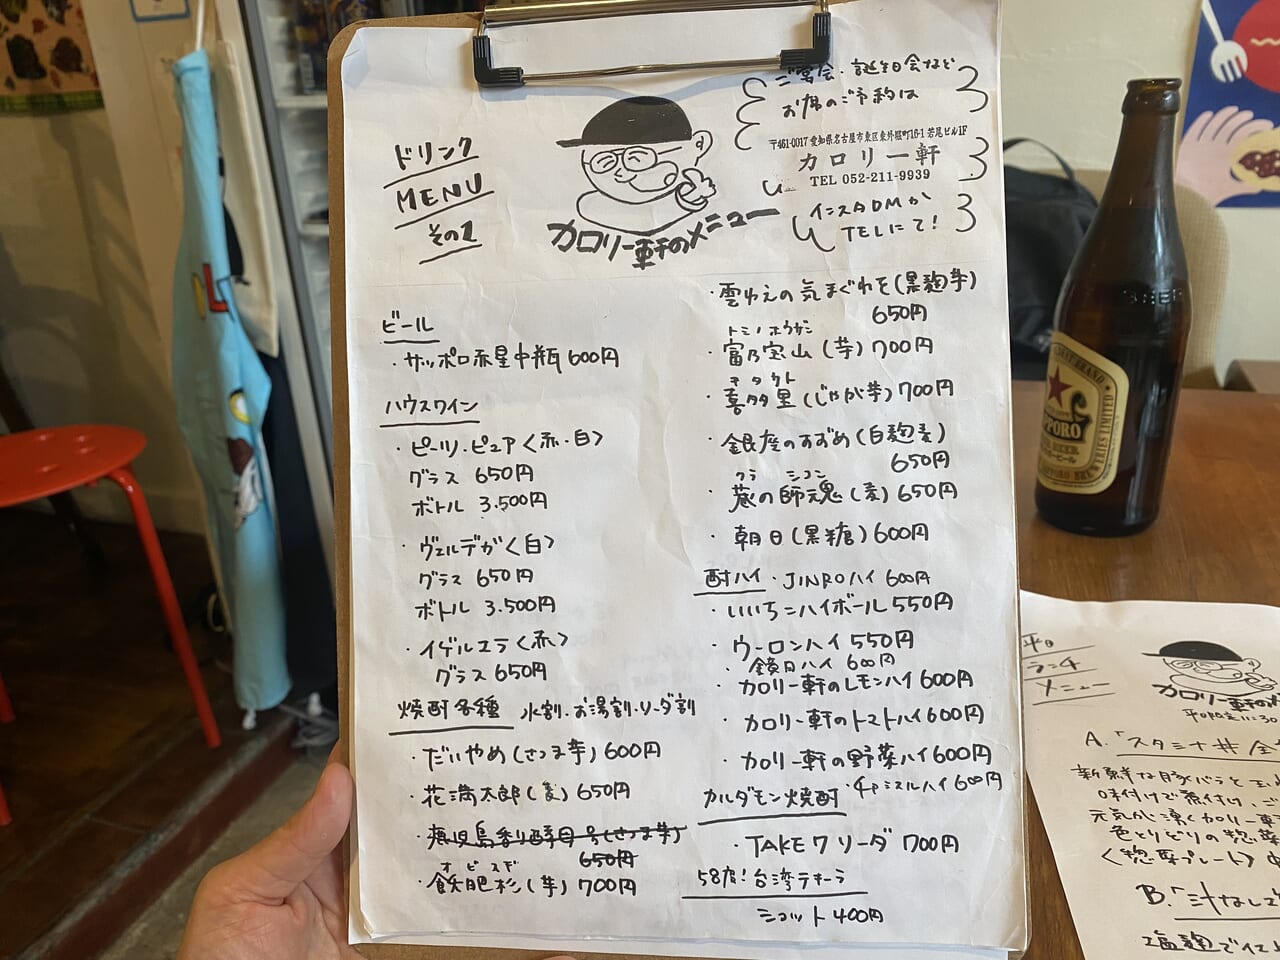 ドリンク
MENU
その1
カロリー軒のメニュー
ご宴会・誕生日会など
お席のご予約は
〒461-0017 愛知県名古屋市東区東外堀町16-1 若尾ビル1F
カロリー軒
TEL 052-211-9939
インスタDMか
TELにて!
ビール
・サッポロ赤星中瓶 600円
ハウスワイン
・ピーツ・ピュア〈赤・白〉
グラス 650円
ボトル 3.500円
・ヴェルデガ〈白〉
グラス 650円
ボトル 3.500円
・イゲルエラ〈赤〉
グラス 650円
焼酎各種 水割・お湯割・ソーダ割
・だいやめ(さつま芋)600円
・花満太郎(麦)650円
・鹿児島香り酵母1号(さつま芋)
650円
オビスギ
・飫肥杉(芋)700円
・雲ゆえの気まぐれを(黒麹芋)
650円
トミノホウザン
・富乃宝山(芋)700円
キタウト
・喜多里(じゃが芋)700円
・銀座のすずめ(白麹麦)
650円
クラ シコン
・蔵の師魂(麦)650円
・朝日(黒糖)600円
酎ハイ ・JINROハイ 600円
・いいちこハイボール 550円
・ウーロンハイ 550円
・鏡月ハイ 600円
・カロリー軒のレモンハイ 600円
・カロリー軒のトマトハイ 600円
・カロリー軒の野菜ハイ 600円
カルダモン焼酎
・TAKE7 ソーダ 700円
58度!台湾テキーラ
ショット 400円
SAPPORO
平日
ランチ
メニュー
カロリー軒の
A.「スタミナ丼
新鮮な豚バラと玉
味付けで煮付け、ご
元気が湧くカロリー軒
色とりどりの惣菜
〈惣菜プレート〉
B.「汁なし